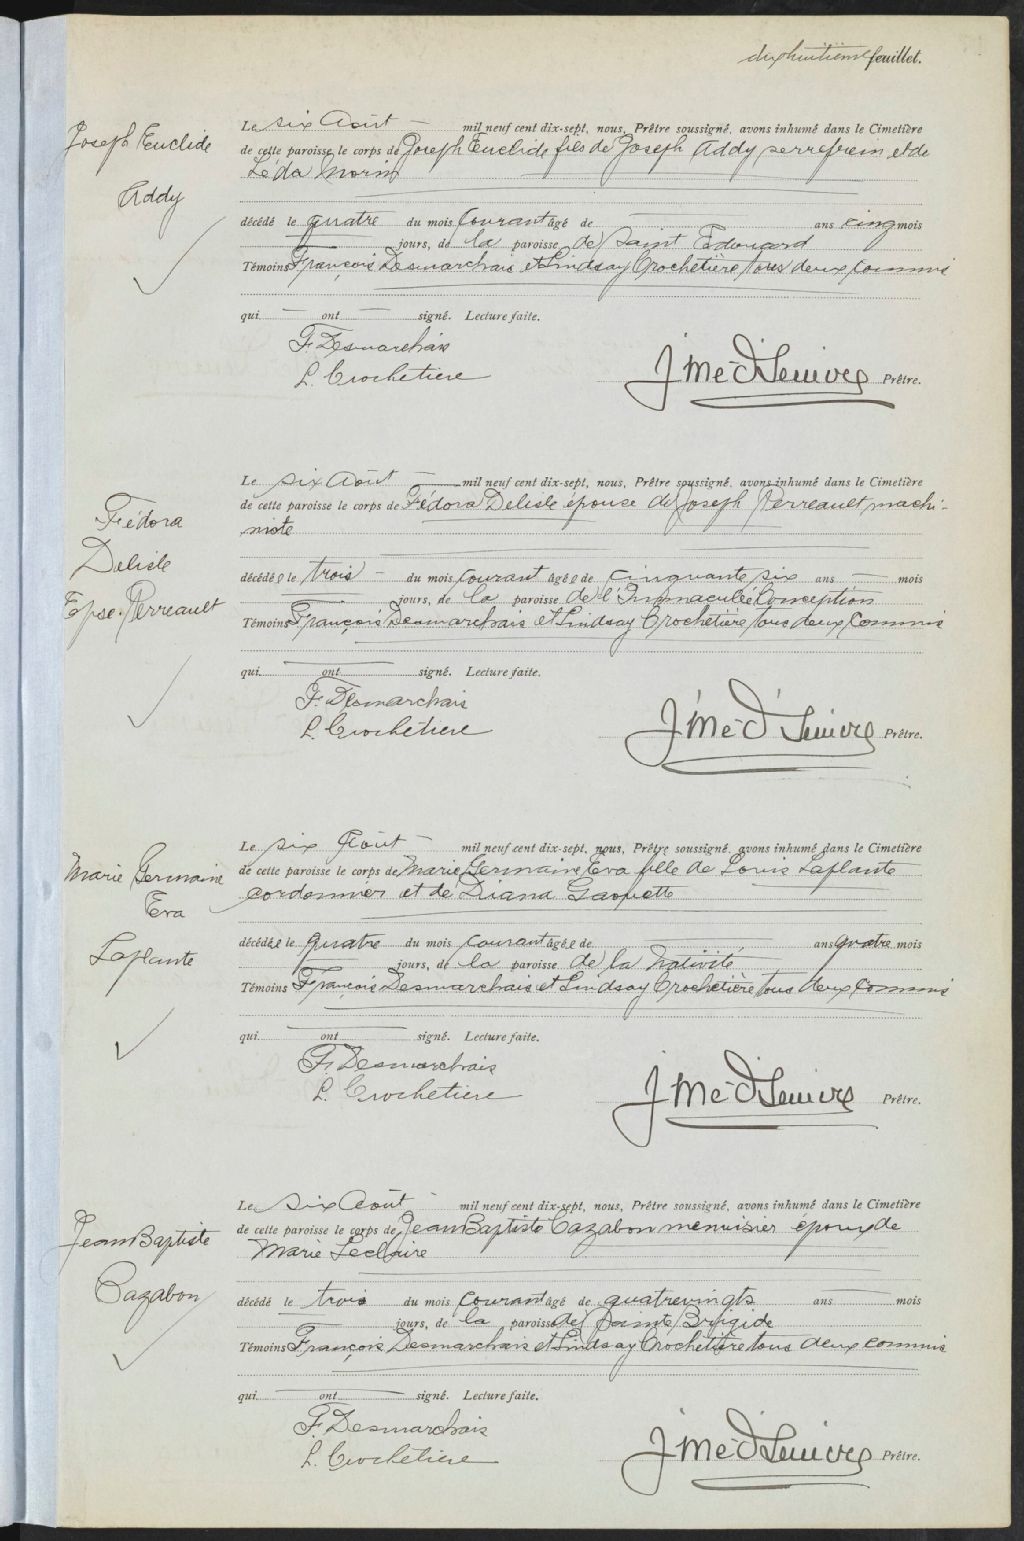 dix huitième feuillet.
Joseph Euclide
Addy
Le six Août mil neuf cent dix-sept, nous, Prêtre soussigné, avons inhumé dans le Cimetière
de cette paroisse le corps de Joseph Euclide fils de Joseph Addy serrefrein et de
Léda Morin
décédé le quatre du mois courant âgé de ans cinq mois
jours, de la paroisse de Saint Edouard
Témoins François Desmarchais et Lindsay Crochetière tous deux commis
qui ont signé. Lecture faite.
F. Desmarchais
L. Crochetiere
Prêtre.
Fédora
Delisle
Epse. Perreault
Le six Août mil neuf cent dix-sept, nous, Prêtre soussigné, avons inhumé dans le Cimetière
de cette paroisse le corps de Fédora Delisle épouse de Joseph Perreault machi-
niste
décédée le trois du mois courant âgée de cinquante six ans mois
jours, de la paroisse de l'Immaculée Conception
Témoins François Desmarchais et Lindsay Crochetière tous deux commis
qui ont signé. Lecture faite.
F. Desmarchais
L. Crochetiere
Prêtre.
Marie Germaine
Eva
Laplante
Le six Août mil neuf cent dix-sept, nous, Prêtre soussigné, avons inhumé dans le Cimetière
de cette paroisse le corps de Marie Germaine Eva fille de Louis Laplante
cordonnier et de Diana
décédée le quatre du mois courant âgée de ans quatre mois
jours, de la paroisse de la Nativité
Témoins François Desmarchais et Lindsay Crochetière tous deux commis
qui ont signé. Lecture faite.
F. Desmarchais
L. Crochetiere
Prêtre.
Jean Baptiste
Cazabon
Le six Août mil neuf cent dix-sept, nous, Prêtre soussigné, avons inhumé dans le Cimetière
de cette paroisse le corps de Jean Baptiste Cazabon menuisier époux de
Marie Leclaire
décédé le trois du mois courant âgé de quatrevingts ans mois
jours, de la paroisse de Sainte Brigide
Témoins François Desmarchais et Lindsay Crochetière tous deux commis
qui ont signé. Lecture faite.
F. Desmarchais
L. Crochetiere
Prêtre.